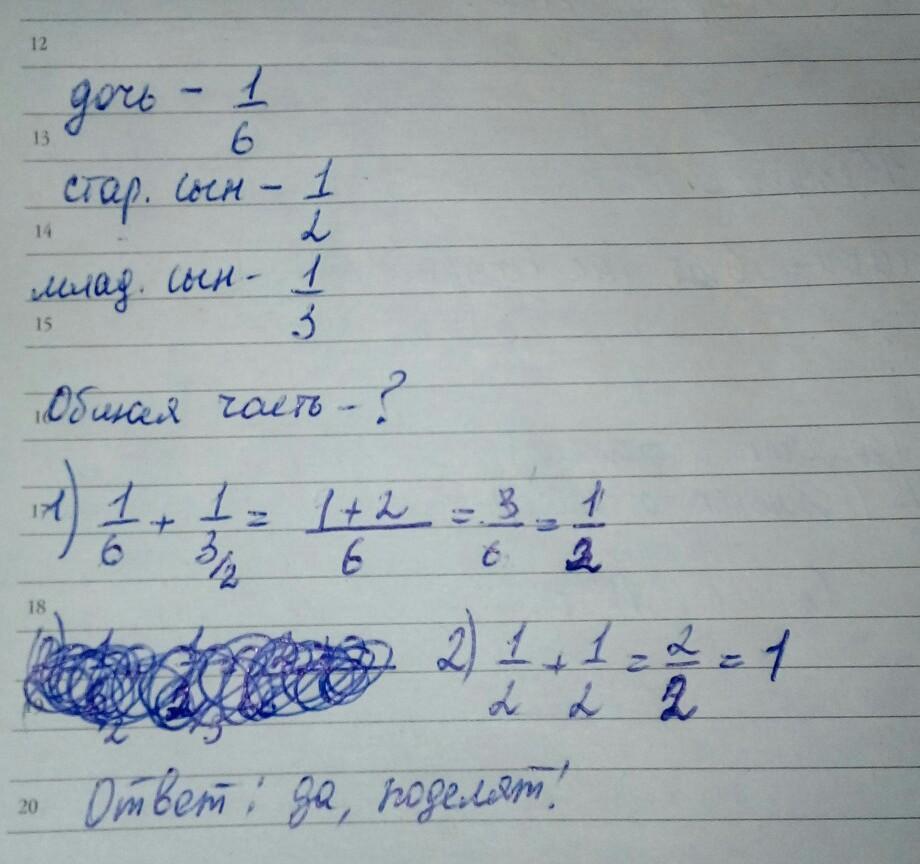 12
дочь - 1/6
13
стар. сын - 1/2
14
млад. сын - 1/3
15
Общая часть - ?
17
1) 1/6 + 1/3/2 = 1+2/6 = 3/6 = 1/2
18
2) 1/2 + 1/2 = 2/2 = 1
20
Ответ: да, поделят!